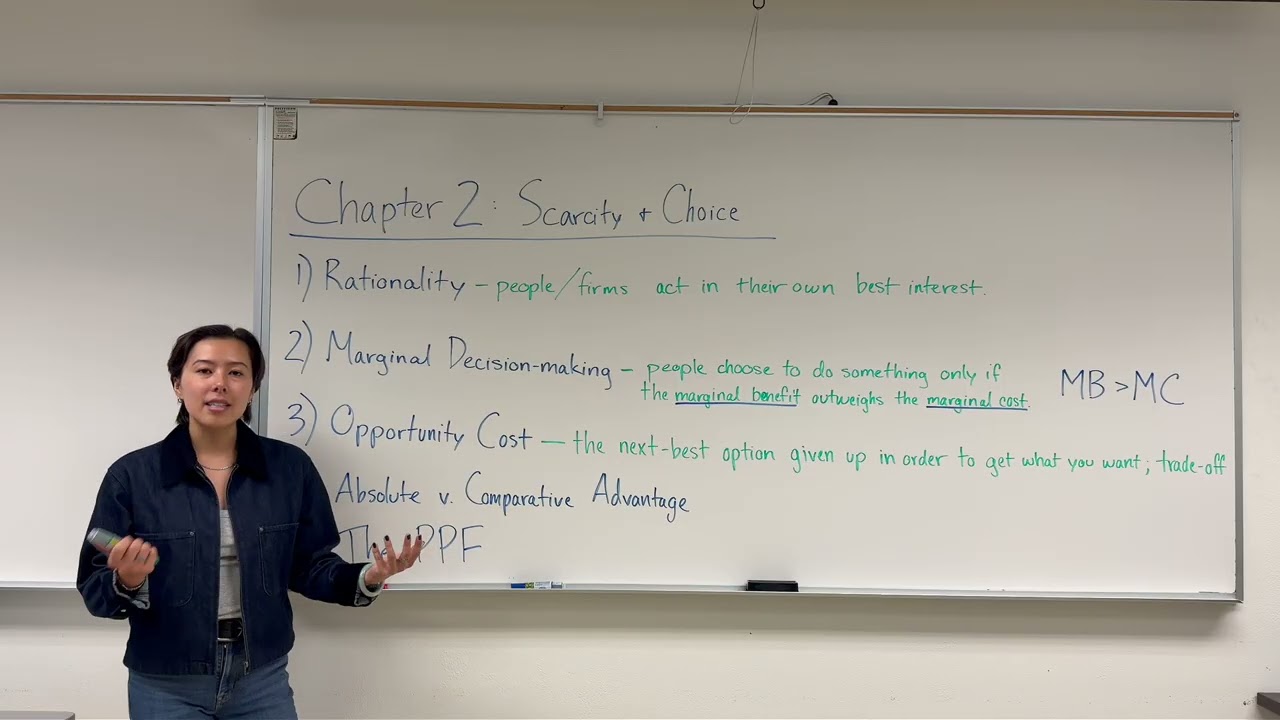 Chapter 2: Scarcity + Choice
1) Rationality - people/firms act in their own best interest.
2) Marginal Decision-making - people choose to do something only if
the marginal benefit outweighs the marginal cost.
MB > MC
3) Opportunity Cost - the next-best option given up in order to get what you want; trade-off
Absolute v. Comparative Advantage
The PPF